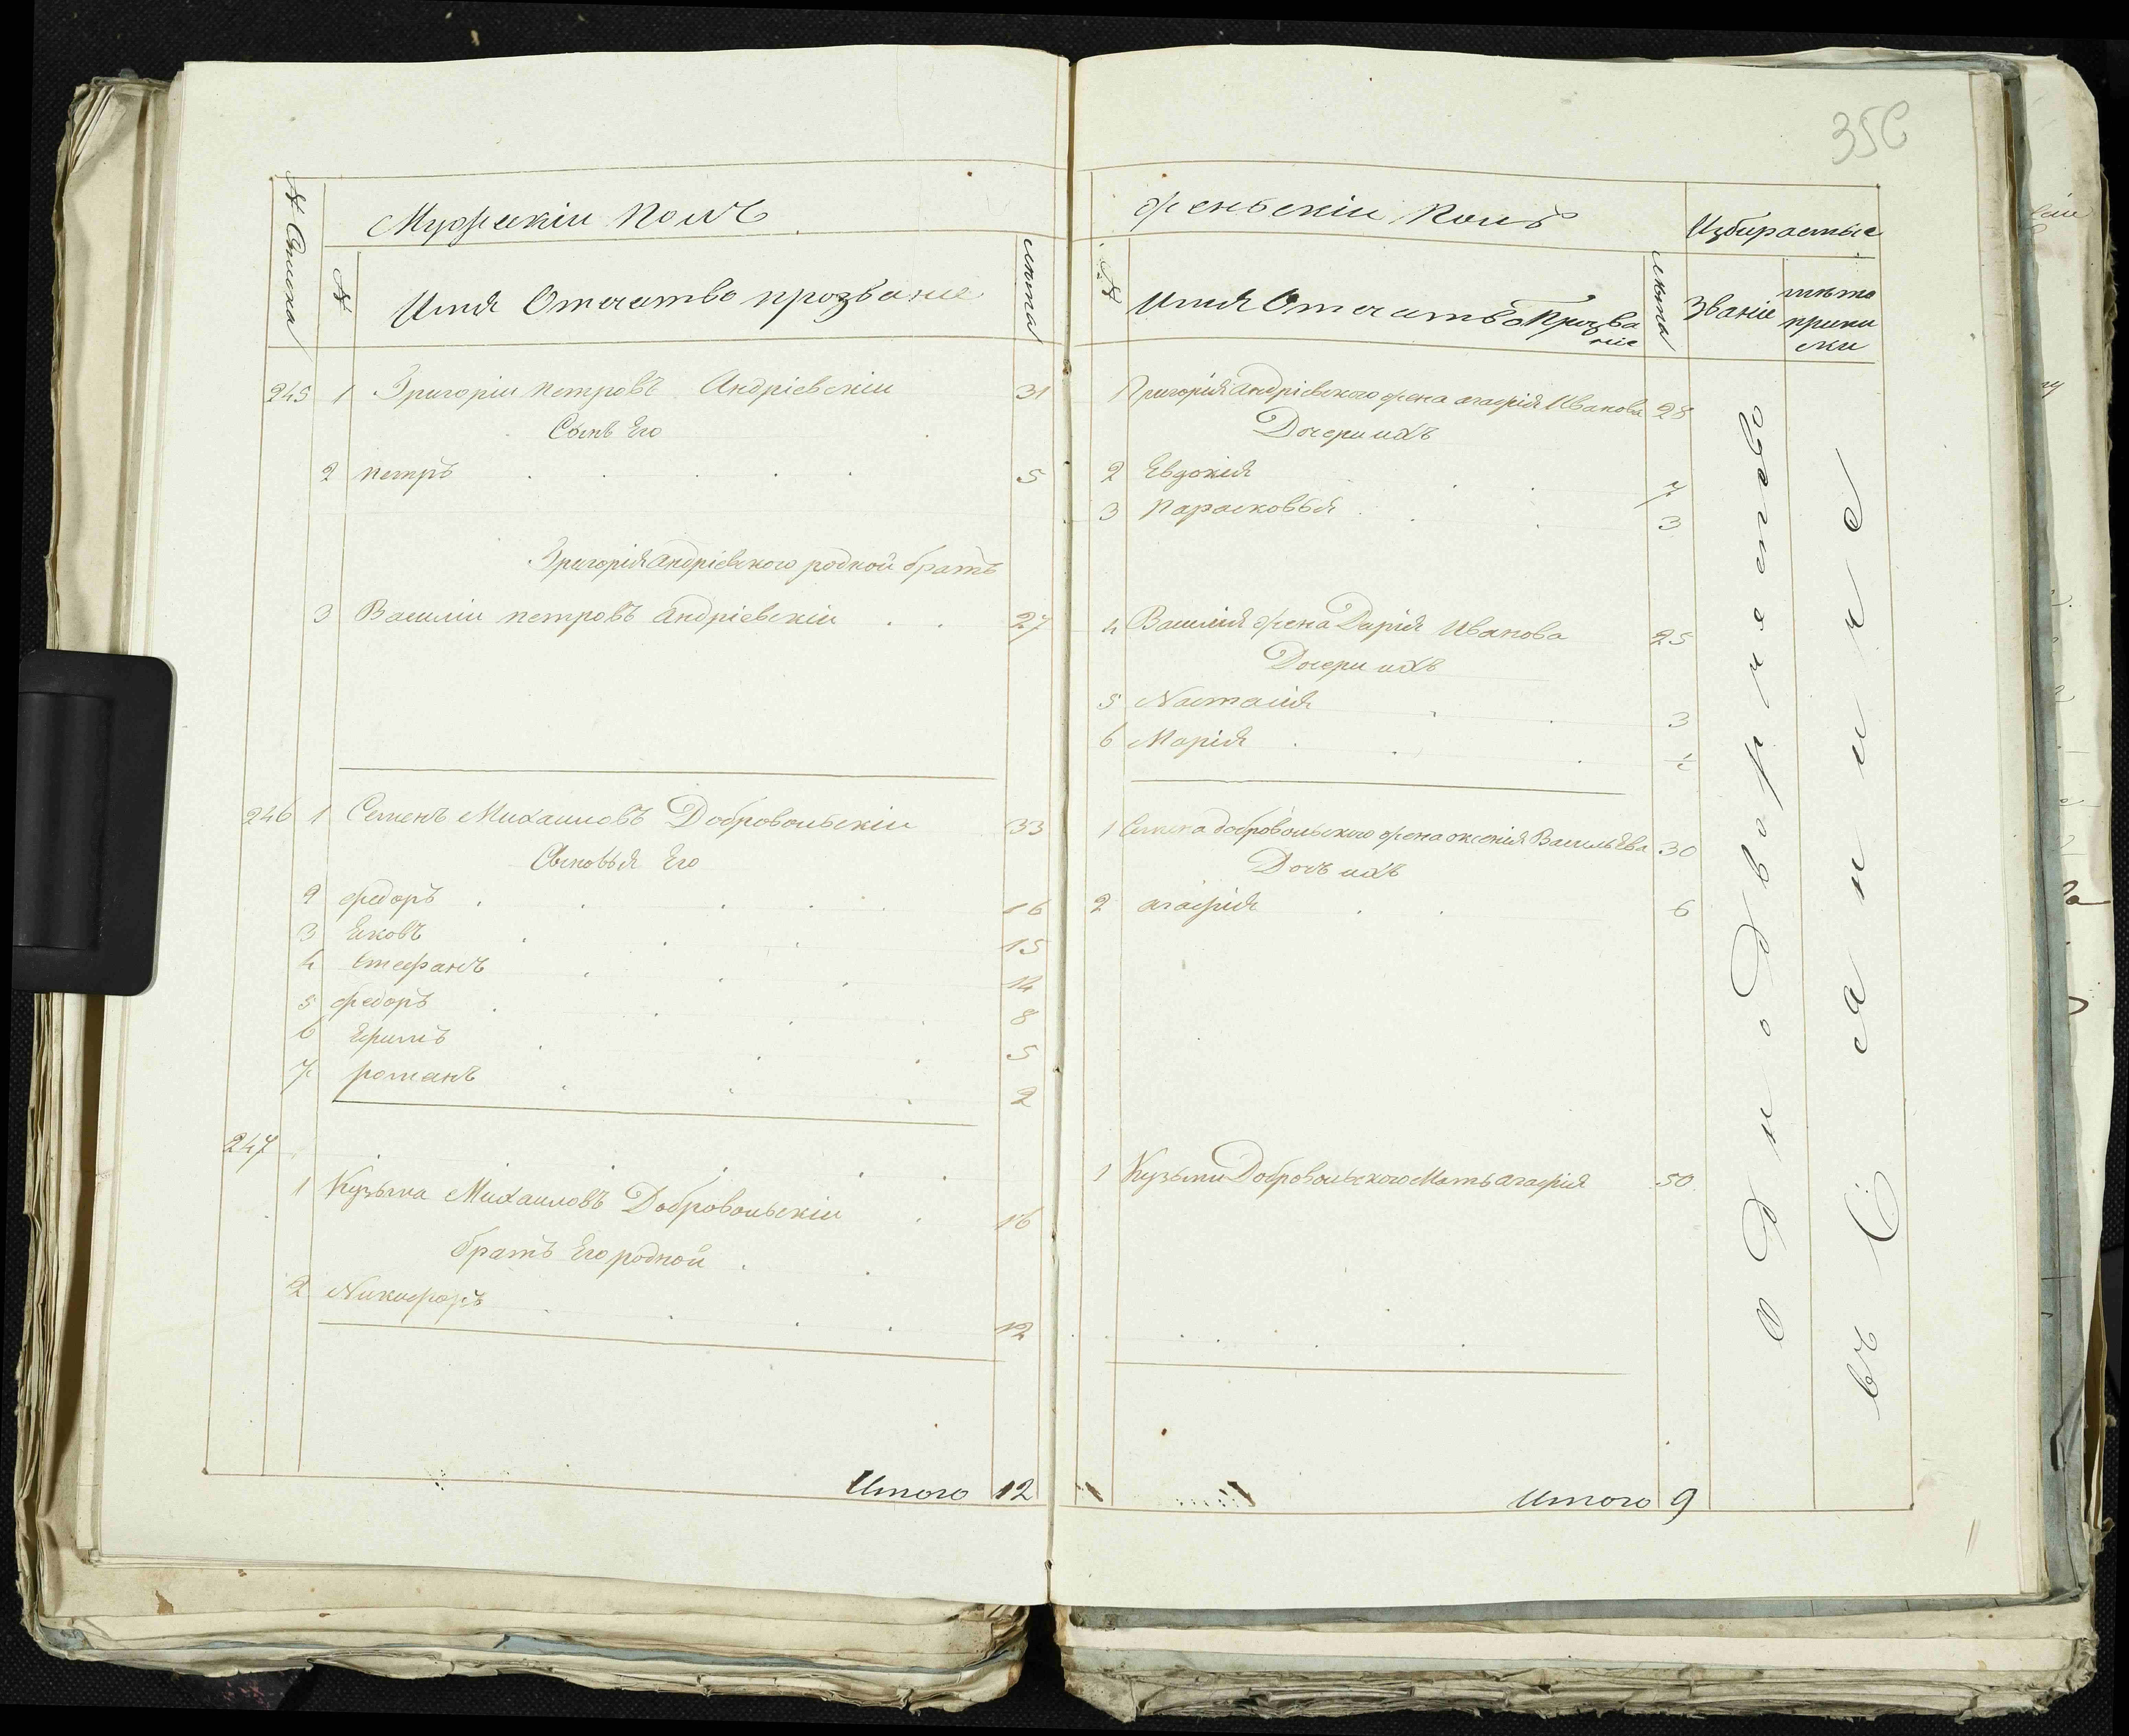 35С
№ Списка
Мужескіи полъ
№
Имя Отчатво прозваніе
лѣта
245 1 Григоріи петровъ Андріевскіи 31
Сынъ Его
2 петръ 5
Григорія андріевского родной братъ
3 Василіи петровъ андріевскіи 27
246 1 Семенъ Михаиловъ Добровольскіи 33
Сыновья Его
2 федоръ 16
3 Яковъ 15
4 Стефанъ 14
5 федоръ 8
6 Ефимъ 5
7 романъ 2
247
1 Кузьма Михаиловъ Добровольскіи 16
братъ Его родной
2 Никифоръ 12
Итого 12
женьскіи полъ
Избираемые
№
Имя Отчатво Прозва
ніе
лѣта
Званіе
мѣто
припи
ски
1 Григорія андріевского жена агафія Иванова 28
Дочери ихъ
2 Евдокія 7
3 Парасковья 3
4 Василія жена Дарія Иванова 25
Дочери ихъ
5 Настасия 3
6 Марія ½
1 Семена добровольского жена оксенія ВасильЕва 30
Дочь ихъ
2 агафія 6
1 Кузьми Добровольского Мать агафія 50
Итого 9
однодворчество
въ